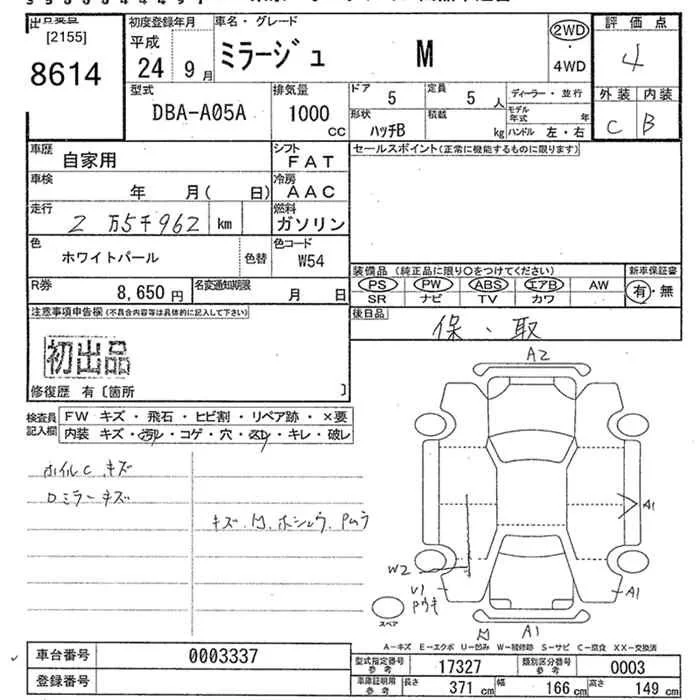 [2155]
8614
初度登録年月
平成
24 9月
車名・グレード
ミラージュ M
2WD
4WD
評価点
4
外装 内装
C B
型式
DBA-A05A
排気量
1000
CC
ドア
5
定員
5 人
ディーラー・並行
モデル年式 年
形状
ハッチB
積載
kg
ハンドル 左・右
車歴
自家用
シフト
FAT
セールスポイント(正常に機能するものに限ります)
車検
年 月( 日)
冷房
AAC
走行
2 万5千962 km
燃料
ガソリン
色
ホワイトパール
色替
色コード
W54
装備品 (純正品に限り○をつけてください)
新車保証書
PS PW ABS エアB AW
SR ナビ TV カワ
有・無
R券
8,650 円
名変通知期限
月 日
後日品
保・取
注意事項申告欄(不具合内容等は具体的に記入して下さい)
初出品
修復歴 有〔箇所 〕
検査員記入欄
FW キズ・飛石・ヒビ割・リペア跡・×要
内装 キズ・汚レ・コゲ・穴・スレ・キレ・破レ
ホイルC キズ
Dミラーキズ
A2
A1
W2
U1
A1
A1
スペア
A-キズ E-エクボ U-凹み W-補修跡 S-サビ C-腐食 XX-交換済
車台番号
0003337
登録番号
型式指定番号
参考
17327
類別区分番号
参考
0003
車庫証明用
参考
長さ
371 cm
幅
166 cm
高さ
149 cm